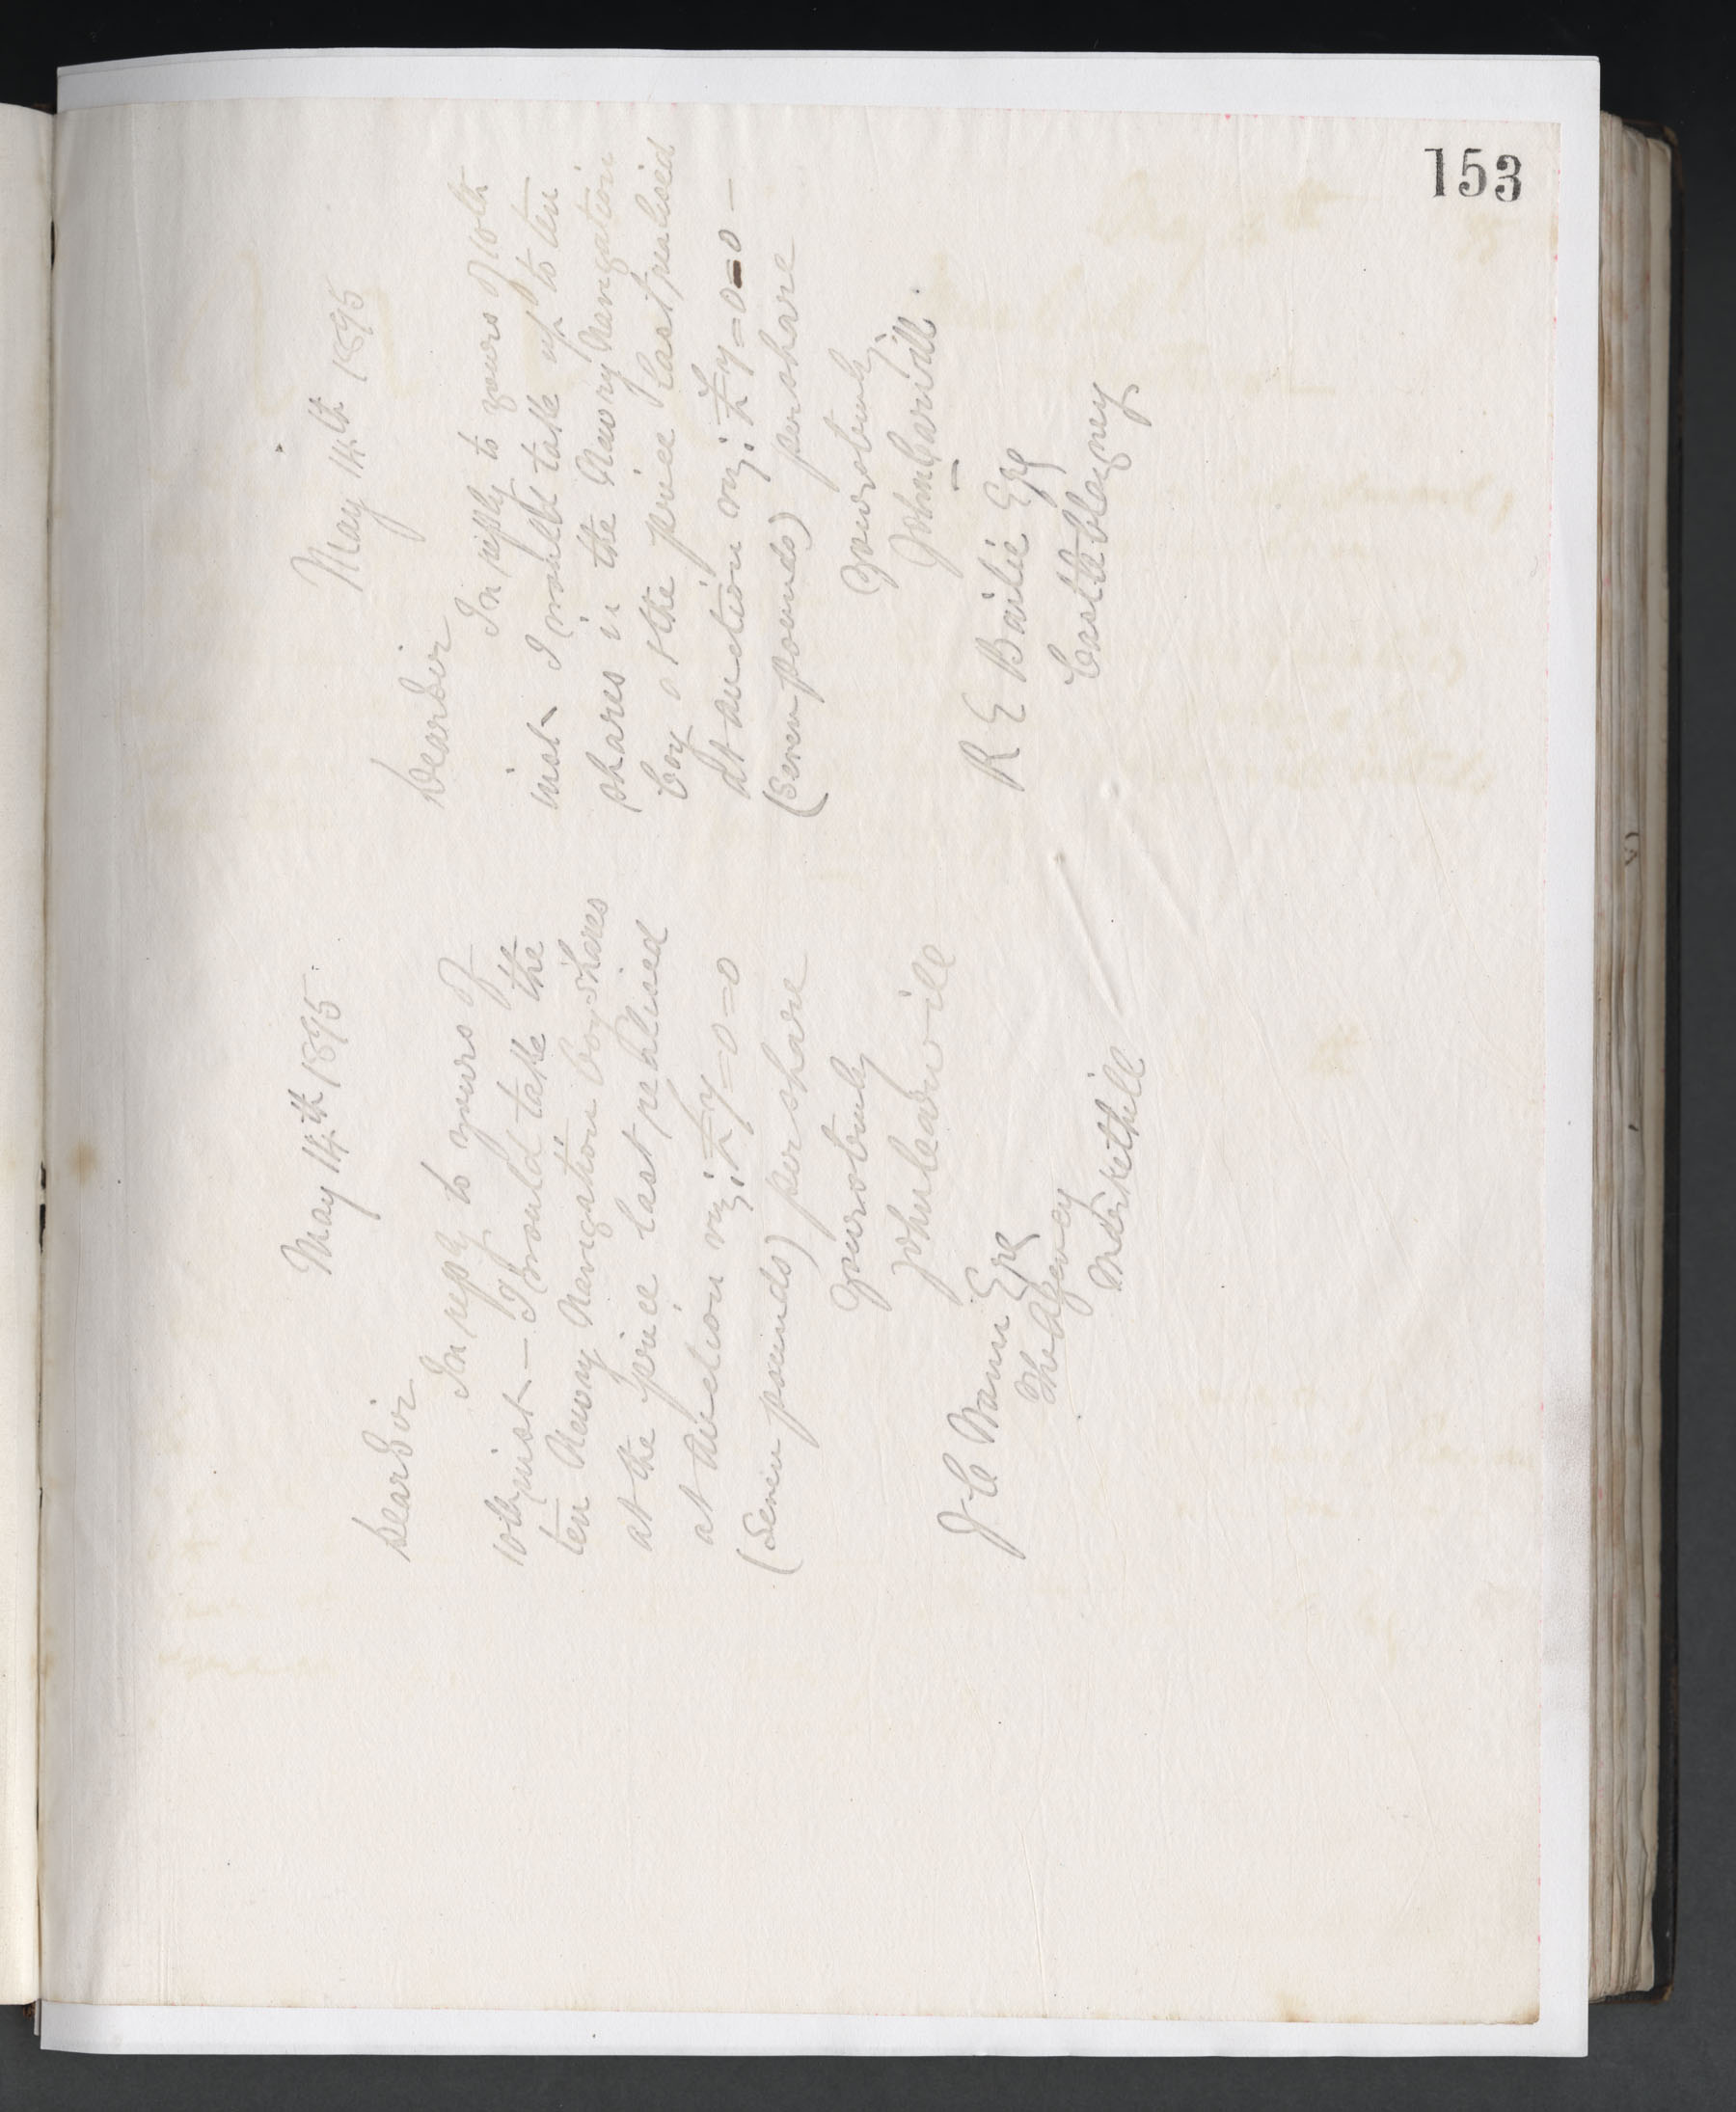 153
May 14th 1895
Dear Sir
In reply to yours of
10th inst - I would take the
ten Newry Navigation Coy shares
at the price last realised
at auction viz: £7=0=0
(seven pounds) per share
yours truly
John Carvill
J C Wann Esq
The Agency
Markethill
May 14th 1895
Dear Sir
In reply to yours of 10th
inst - I would take up to ten
shares in the Newry Navigation
Coy at the price last realised
at auction viz: £7=0=0 -
(seven pounds) per share
yours truly
John Carvill
R E Bailie Esq
Castleblayney